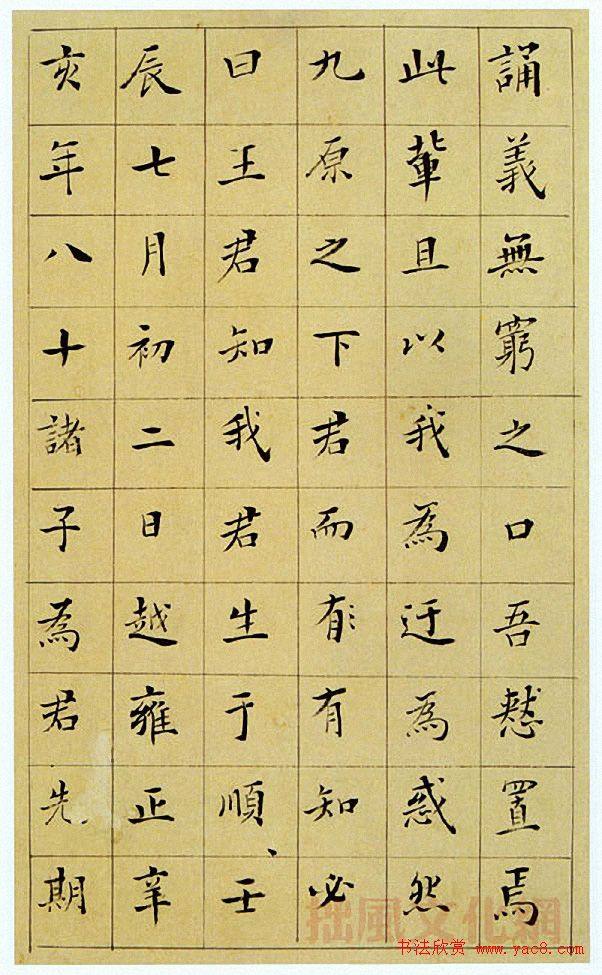 誦義無窮之口吾置焉
此輩且以我為迂為惑然
九原之下君而有有知必
曰王君知我君生于順壬
辰七月初二日越雍正辛
亥年八十諸子為君先期
拙風文化網
书法欣赏 www.yac8.com